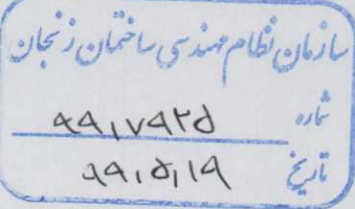 سازمان نظام مهندسی ساختمان زنجان
شماره ۹۹٫۷۹۲۵
تاریخ ۹۹٫۵٫۱۹